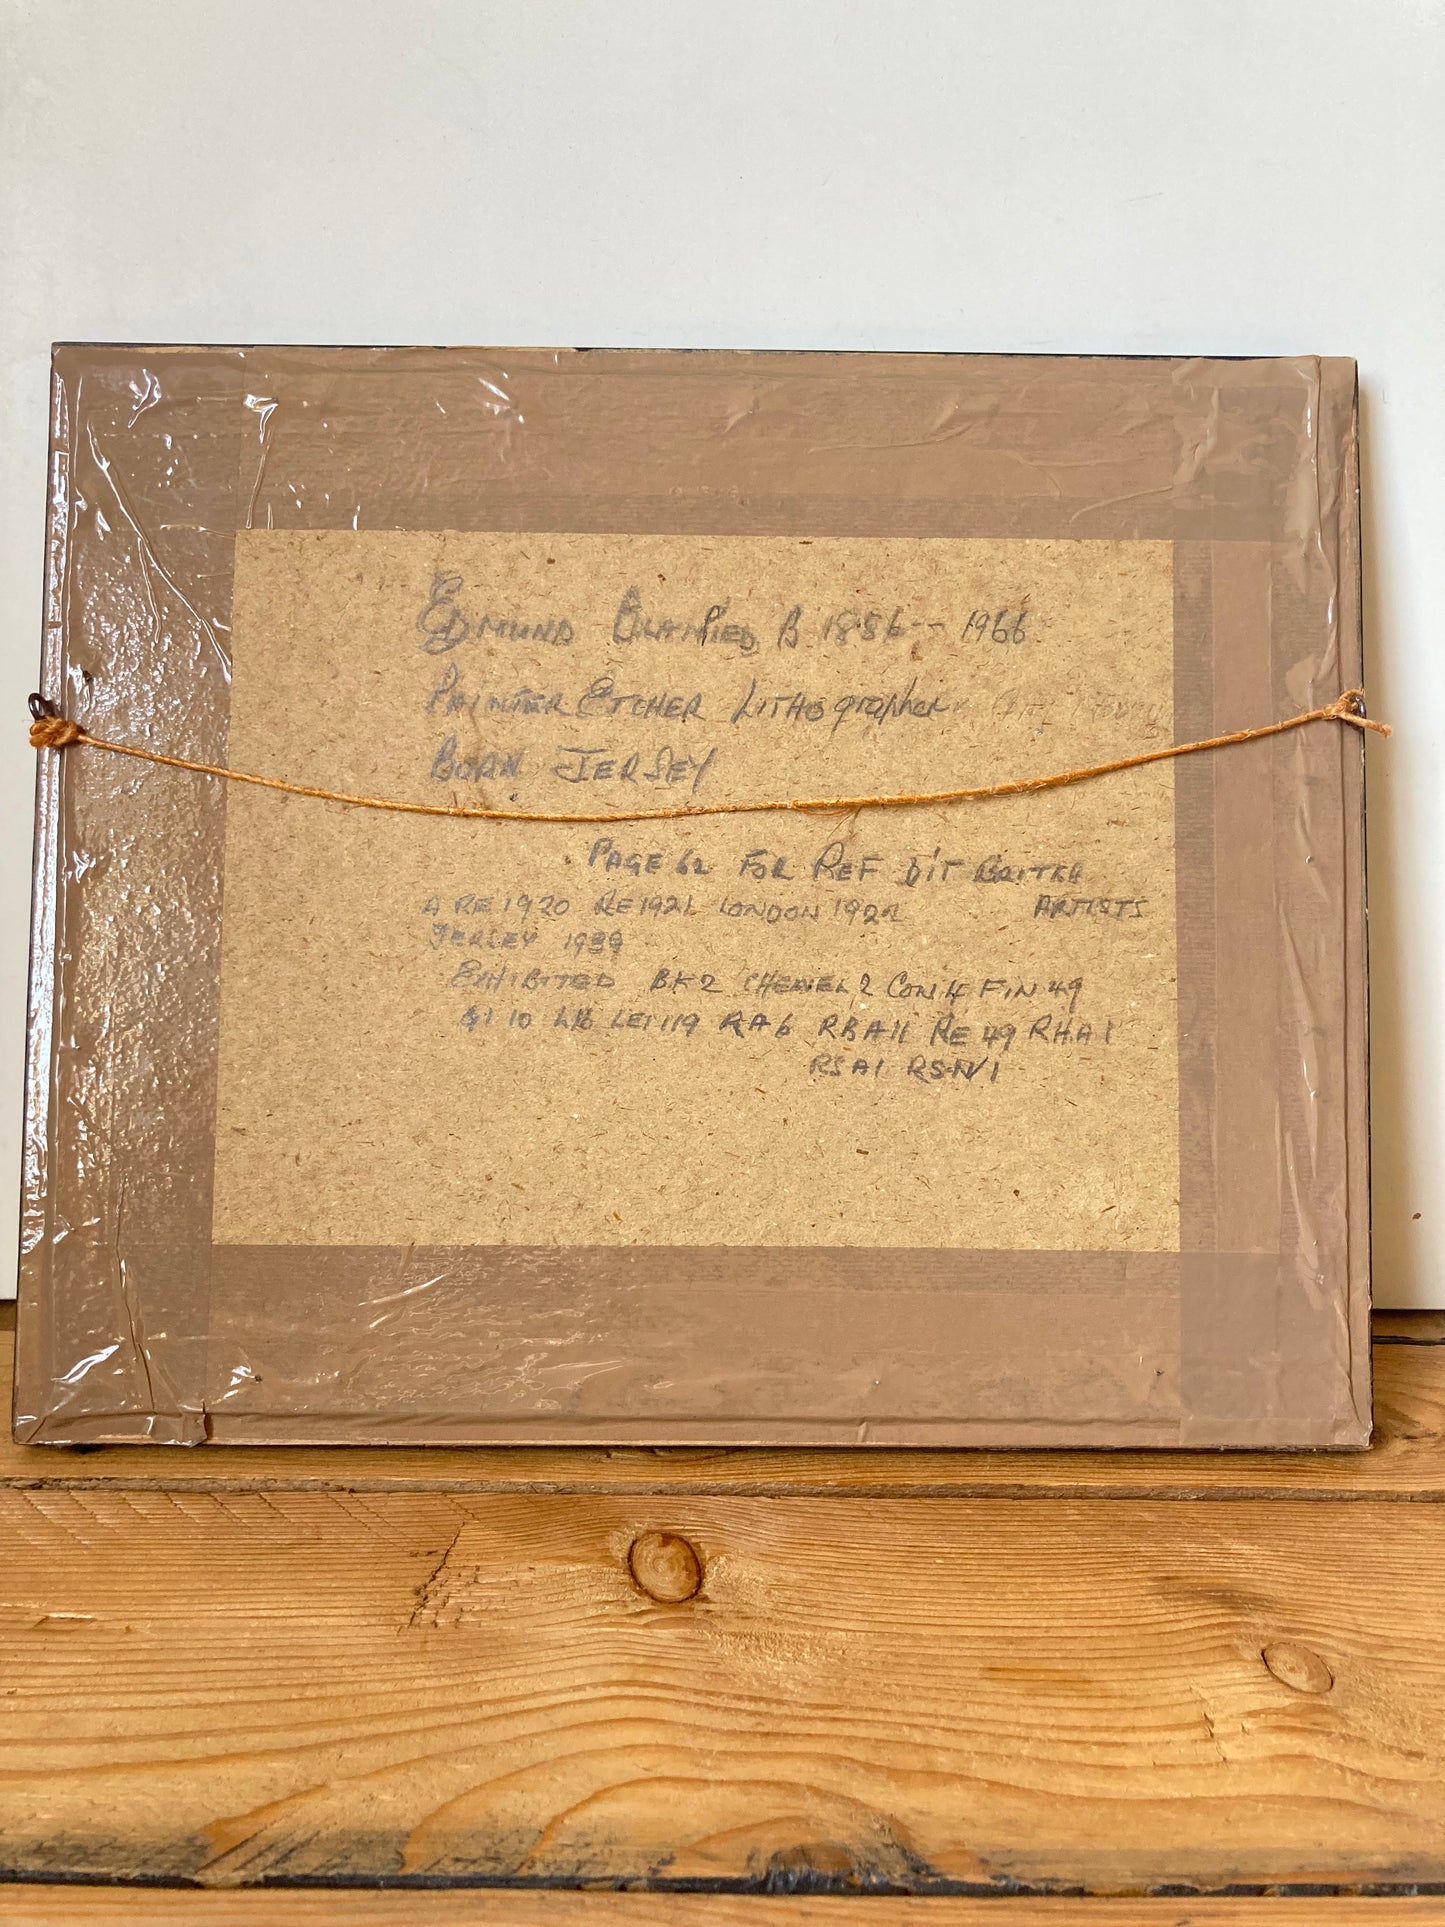 Edmund Blampied B 1886 - 1966
Painter Etcher Lithographer
Born Jersey
Page 62 for Ref Dit Britsh
Artists
A RE 1920 RE 1921 London 1922
Jersey 1939
Exhibited BK2 Chenel 2 Con 4 Fin 49
GI 10 L16 LEI 119 RA6 RBA11 RE 49 RHA1
RSA1 RSW1